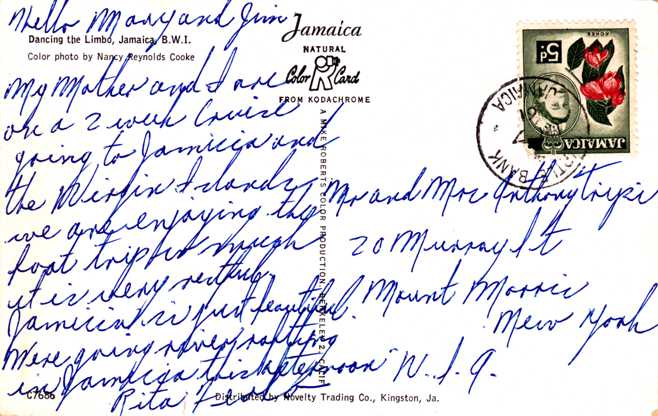 Hello Mary and Jim
Dancing the Limbo, Jamaica, B.W.I.
Color photo by Nancy Reynolds Cooke
My Mother and I are
on a 2 week Cruise
going to Jamicia and
the Virgin Islands
we are enjoying the
boat trip so much
it is very restful.
Jamicia is just beautiful.
Were going river rafting
in Jamaica this afternoon
Rita
C7686
Distributed by Novelty Trading Co., Kingston, Ja.
Jamaica
NATURAL
Color Card
FROM KODACHROME
A MIKE ROBERTS COLOR PRODUCTION, BERKELEY 2, CALIF
5d
JAMAICA
BANK
JAMAICA
Mr and Mrs Anthony Tripi
20 Murray St
Mount Morris
New York
U.S.A.